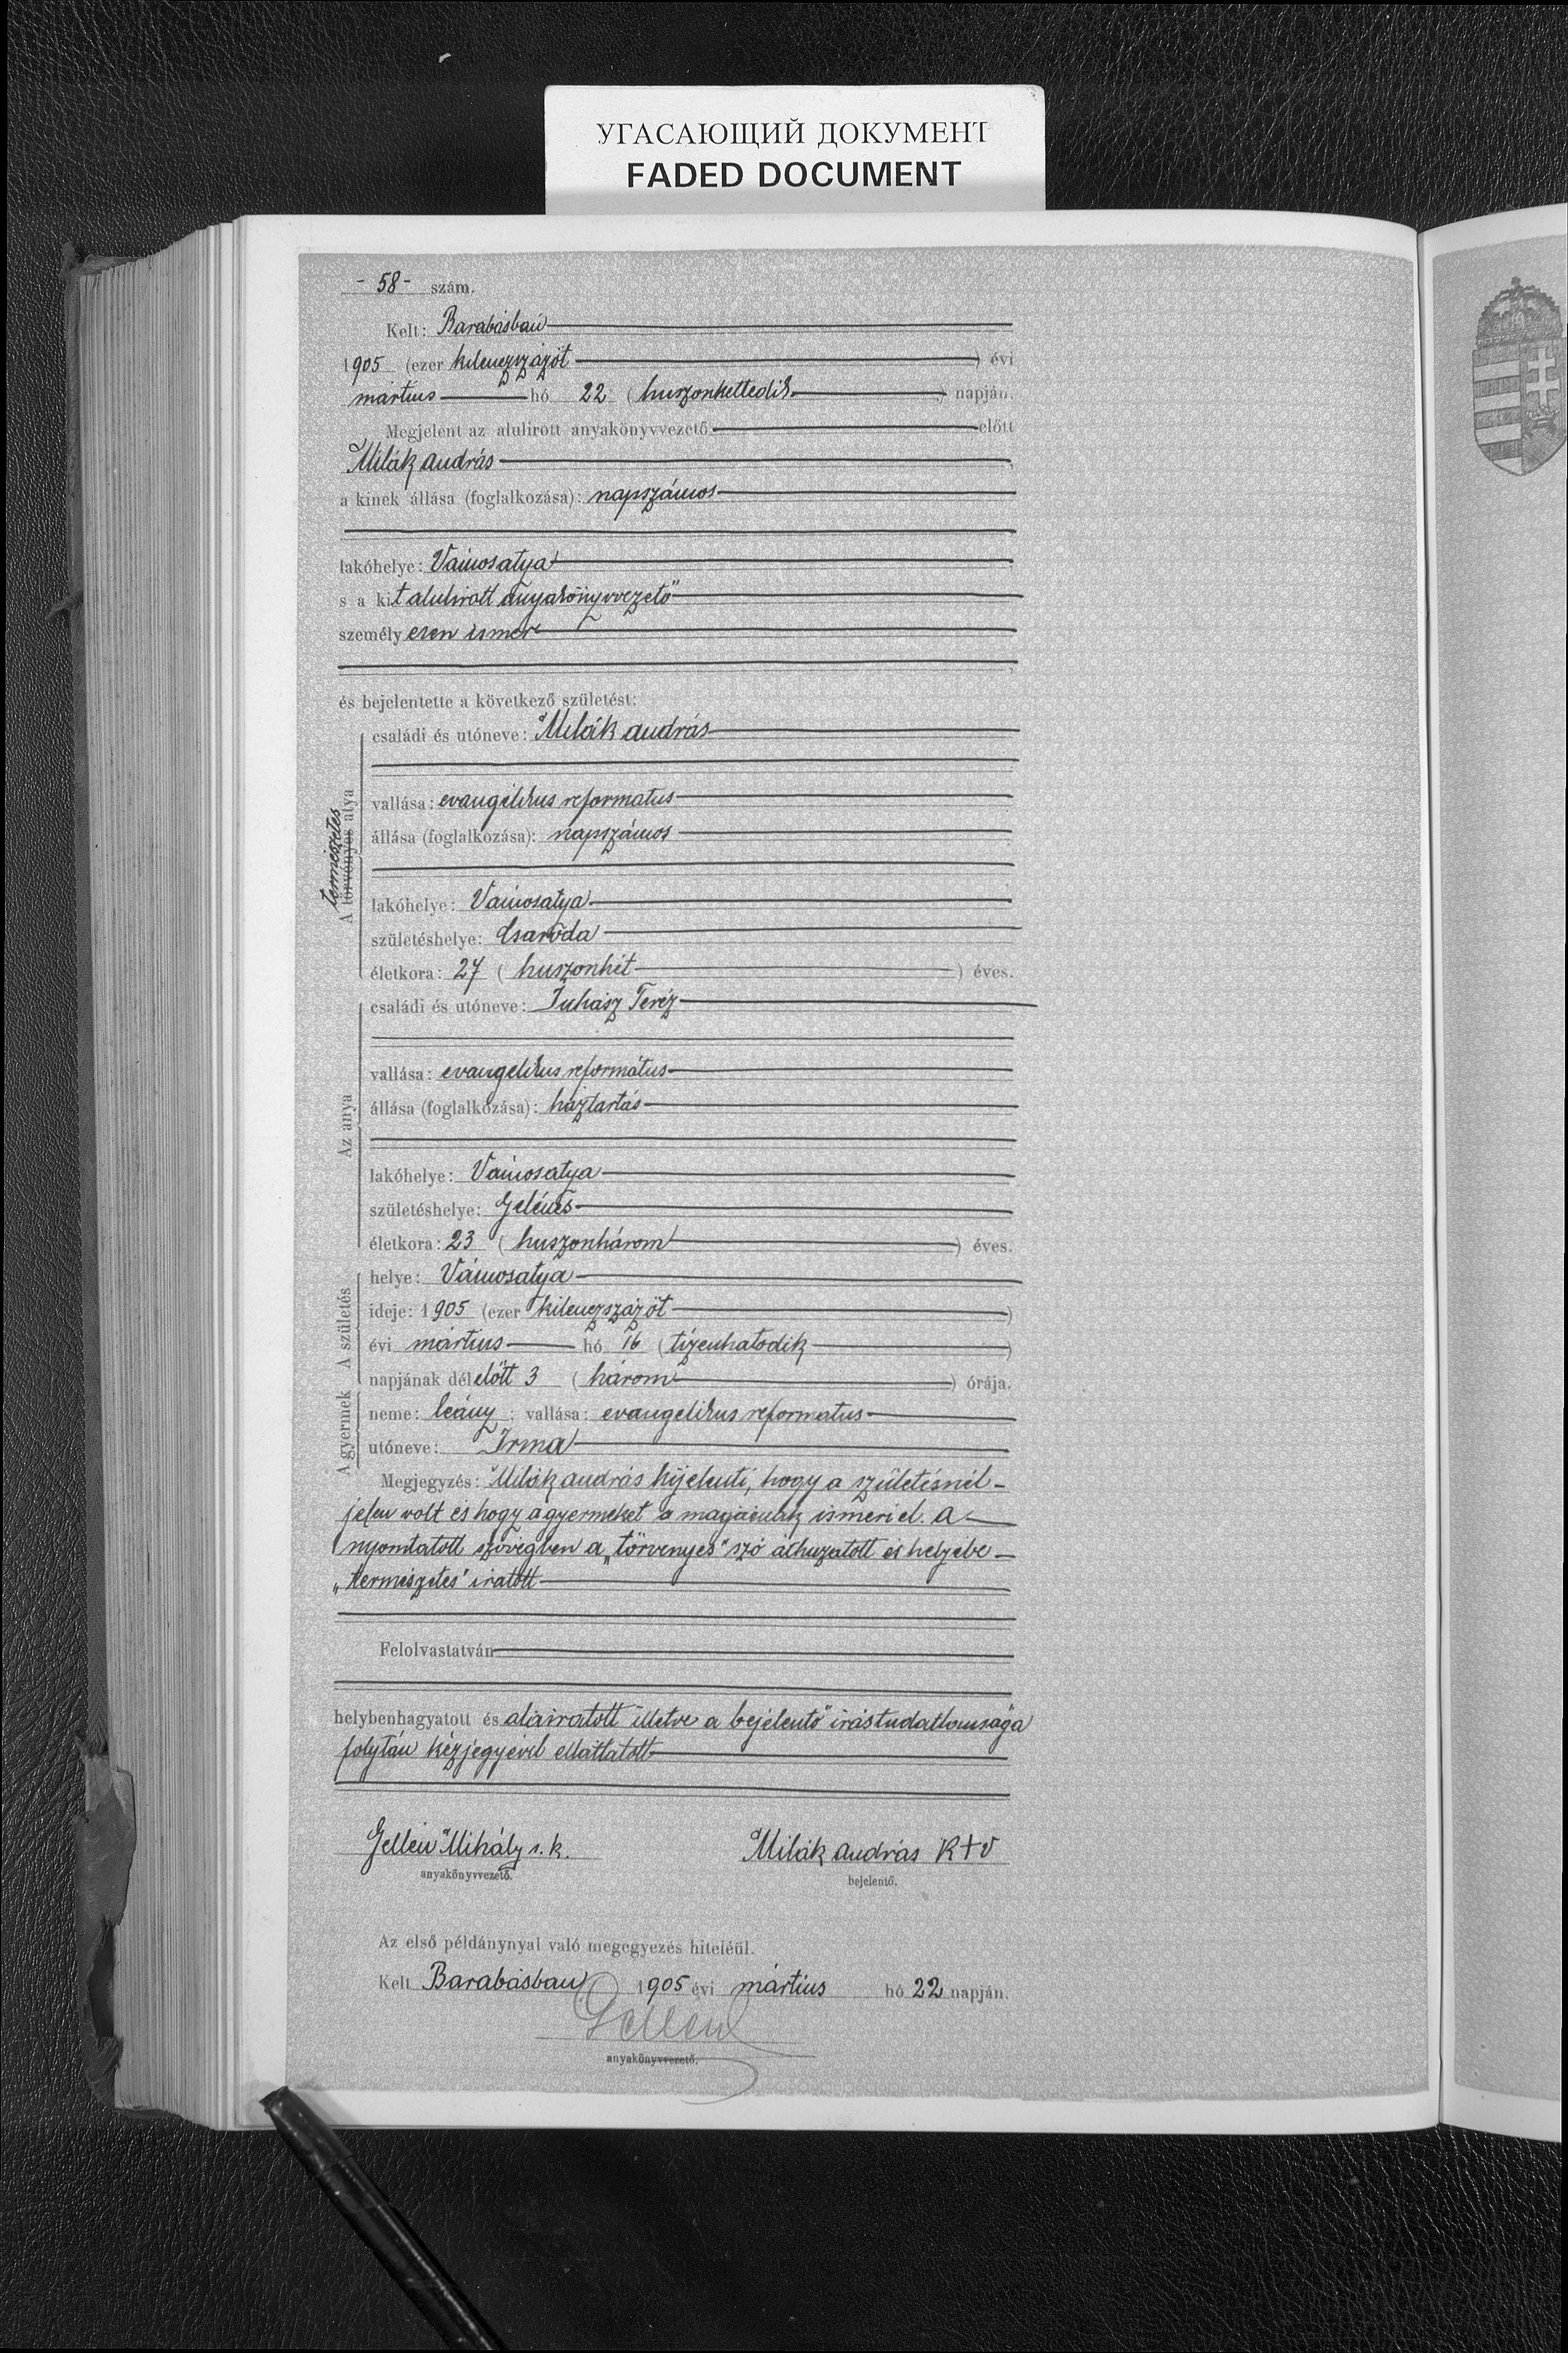 УГАСАЮЩИЙ ДОКУМЕНТ
FADED DOCUMENT
- 58 - szám.
Kelt: Barabásban
1905 (ezer kilenczszázöt ) évi
mártius hó 22 (huszonkettedik ) napján.
Megjelent az alulirott anyakönyvvezető előtt
Milák András
a kinek állása (foglalkozása): napszámos
lakóhelye: Vámosatya
s a kit alulirott anyakönyvvezető
személyesen ismer
és bejelentette a következő születést:
A törvényes atya
természetes
családi és utóneve: Milák András
vallása: evangélikus reformatus
állása (foglalkozása): napszámos
lakóhelye: Vámosatya
születéshelye: Csaróda
életkora: 27 (huszonhét ) éves.
Az anya
családi és utóneve: Juhász Teréz
vallása: evangelikus református
állása (foglalkozása): háztartás
lakóhelye: Vámosatya
születéshelye: Gelénes
életkora: 23 (huszonhárom ) éves.
A születés
helye: Vámosatya
ideje: 1905 (ezer kilenczszázöt )
évi mártius hó 16 (tizenhatodik )
napjának délelőtt 3 (három ) órája.
A gyermek
neme: leány ; vallása: evangelikus reformatus
utóneve: Irma
Megjegyzés: Milák András kijelenti, hogy a születésnél
jelen volt és hogy a gyermeket a magáénak ismeri el. A
nyomtatott szövegben a „törvényes" szó áthuzatott és helyébe
„természetes" iratott
Felolvastatván
helybenhagyatott és aláiratott illetve a bejelentő irástudatlansága
folytán kézjegyével elláttatott
Gellén Mihály s. k.
anyakönyvvezető.
Milák András K+V
bejelentő.
Az első példánynyal való megegyezés hiteléül.
Kelt Barabásban 1905 évi mártius hó 22 napján.
Gellén
anyakönyvvezető.